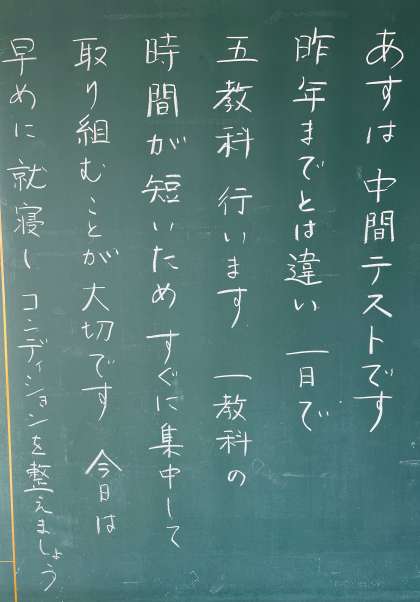 あすは 中間テストです
昨年までとは違い 一日で
五教科 行います 一教科の
時間が短いため すぐに集中して
取り組むことが大切です 今日は
早めに就寝し コンディションを整えましょう